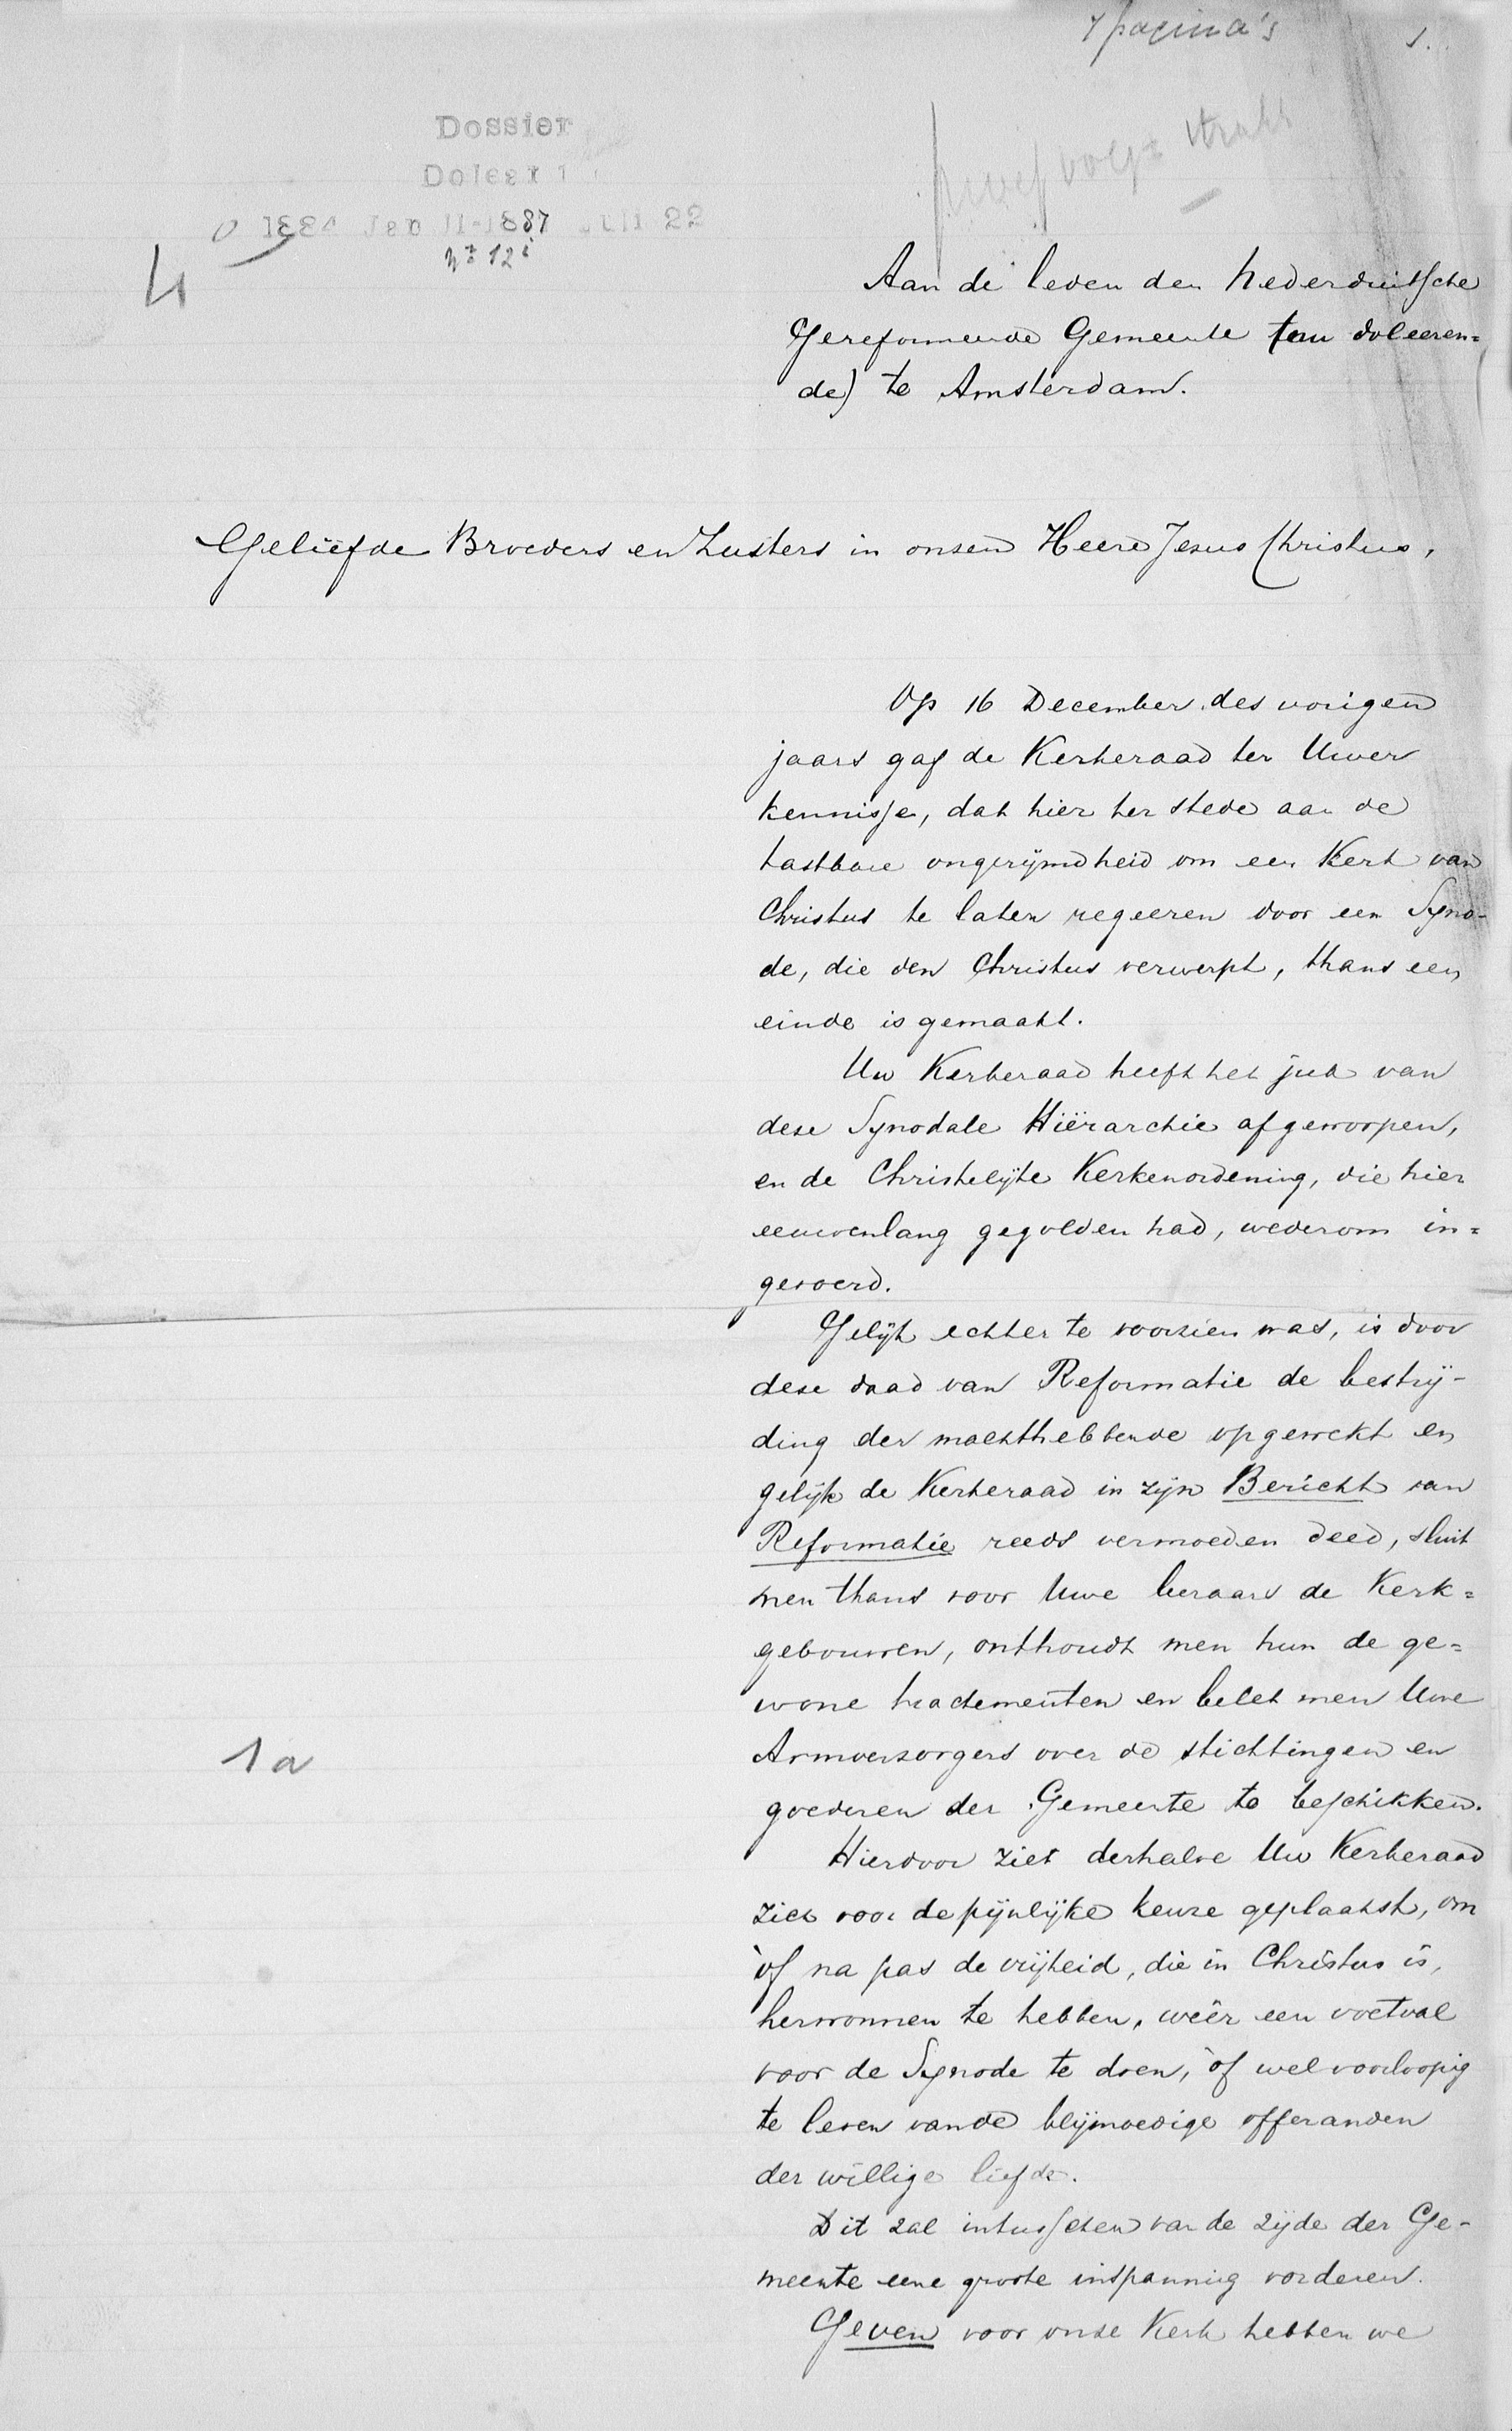 7 pagina's
1.
Dossier
Doleer
1884 Jan 11-1887 Juli 22
No 12i
4
proef volgt
Aan de leden der Nederduitsche
Gereformeerde Gemeente (ten doleeren=
de) te Amsterdam.
Geliefde Broeders en Zusters in onzen Heere Jesus Christus,
Op 16 December des vorigen
jaars gaf de Kerkeraad ter Uwer
kennisse, dat hier ter stede aan de
tastbare ongerijmdheid om een Kerk van
Christus te laten regeeren door een Syno-
de, die den Christus verwerpt, thans een
einde is gemaakt.
Uw Kerkeraad heeft het juk van
deze Synodale Hiërarchie afgeworpen,
en de Christelijke Kerkenordening, die hier
eeuwenlang gegolden had, wederom in=
gevoerd.
Gelijk echter te voorzien was, is door
deze daad van Reformatie de bestrij-
ding der machthebbende opgewekt en
gelijk de Kerkeraad in zijn Bericht van
Reformatie reeds vermoeden deed, sluit
men thans voor Uwe leeraars de Kerk=
gebouwen, onthoudt men hun de ge=
wone tractementen en belet men Uwe
Armverzorgers over de stichtingen en
goederen der Gemeente te beschikken.
1a
Hierdoor ziet derhalve Uw Kerkeraad
zich voor de pijnlijke keuze geplaatst, om
òf na pas de vrijheid, die in Christus is,
herwonnen te hebben, weêr een voetval
voor de Synode te doen, òf wel voorloopig
te leven van de blijmoedige offeranden
der willige liefde.
Dit zal intusschen van de zijde der Ge-
meente eene groote inspanning vorderen.
Geven voor onze Kerk hebben we